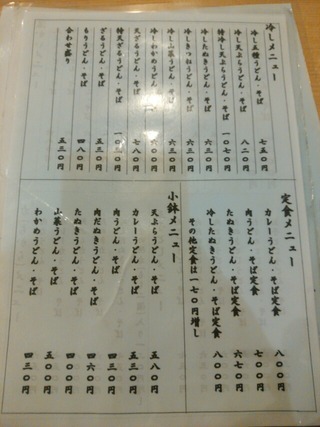 冷しメニュー
冷し五種うどん・そば 七五〇円
冷し天ぷらうどん・そば 八二〇円
特冷し天ぷらうどん・そば 一〇七〇円
冷したぬきうどん・そば 六三〇円
冷しきつねうどん・そば 六三〇円
冷し山菜うどん・そば 六三〇円
冷しわかめうどん・そば 六〇〇円
天ざるうどん・そば 七八〇円
特天ざるうどん・そば 一〇三〇円
ざるうどん・そば 五三〇円
もりうどん・そば 四八〇円
合わせ盛り 五三〇円
定食メニュー
カレーうどん・そば定食 八〇〇円
肉うどん・そば定食 七〇〇円
たぬきうどん・そば定食 六七〇円
冷したぬきうどん・そば定食 八〇〇円
その他定食は一七〇円増し
小鉢メニュー
天ぷらうどん・そば 五八〇円
カレーうどん・そば 五三〇円
肉うどん・そば 四三〇円
肉だぬきうどん・そば 四六〇円
たぬきうどん・そば 四〇〇円
山菜うどん・そば 五〇〇円
わかめうどん・そば 四三〇円